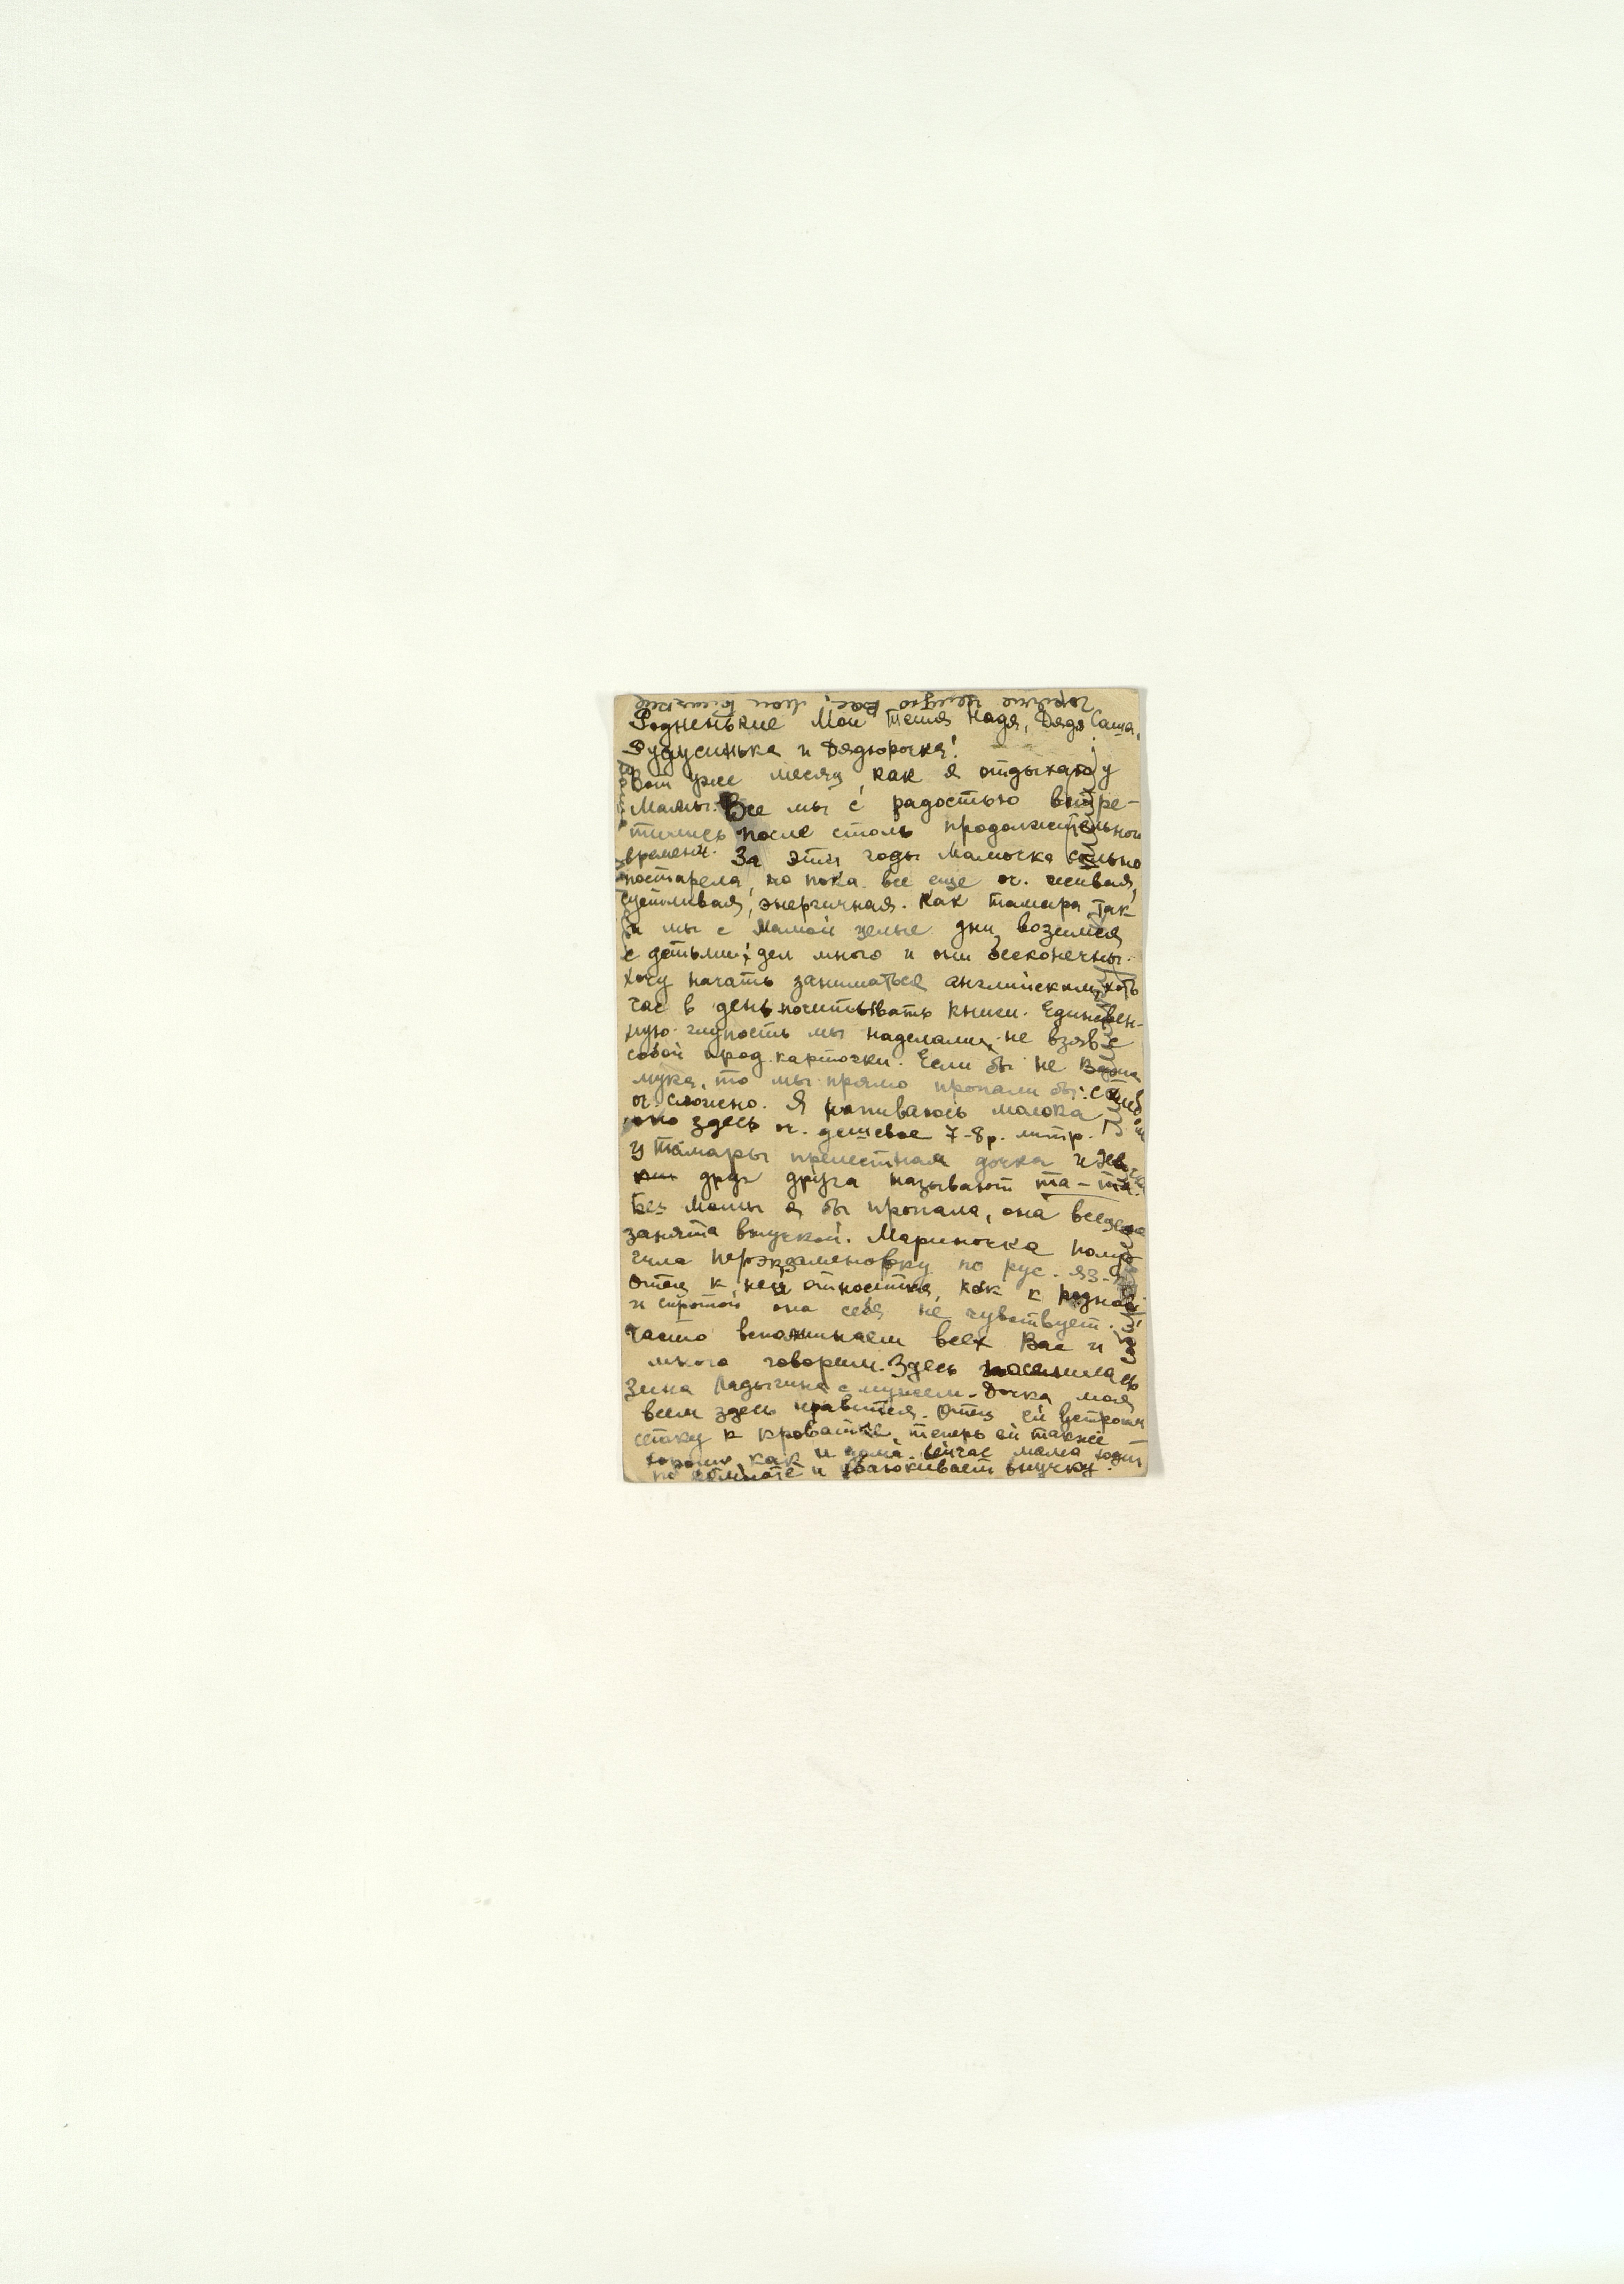 Родненькие мои тетя Надя, Дядя Саша,
Дудусинька и Дядюрочка!
Вот уже месяц, как я отдыхаю у
Мамы. Все мы с радостью встре-
тились после столь продолжительной
времени. За эти годы Мамочка сильно
постарела, но пока все еще оч. живая,
суетливая, энергичная. Как Тамара, так
и мы с мамой целые дни возимся
с детьми; дел много и они бесконечны.
Хочу начать заниматься английским, хоть
час в день почитывать книги. Единствен-
ную глупость мы наделали, не взяв с
собой прод. карточки. Если бы не Ваша
мука, то мы прямо пропали бы: с хлебом
оч. сложно. Я напиваюсь молока
оно здесь оч. дешевое 7-8 р. литр.
У Тамары прелестная дочка и
друг друга называют та-та.
Без Мамы я бы пропала, она все
занята внучкой. Мариночка полу-
чила переэкзаменовку по рус. яз.
Отец к ней относится, как к родной
и сиротой она себя не чувствует.
Часто вспоминаем всех Вас и
много говорим. Здесь поселилась
Зина Ладыгина с мужем. Дочка моя
всем здесь нравится. Отец ей устроил
сетку к кроватке, теперь ей также
хорошо, как и дома. Сейчас мама ходит
по комнате и убаюкивает внучку.
горячие целую Вас, мои близкие